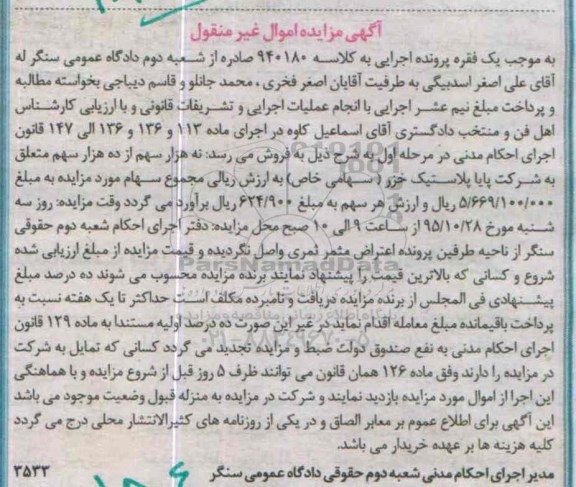 آگهی مزایده اموال غیر منقول
به موجب یک فقره پرونده اجرایی به کلاسه ۹۴۰۱۸۰ صادره از شعبه دوم دادگاه عمومی سنگر له
آقای علی اصغر اسدبیگی به طرفیت آقایان اصغر فخری ، محمد جانلو و قاسم دیباجی بخواسته مطالبه
و پرداخت مبلغ نیم عشر اجرایی با انجام عملیات اجرایی و تشریفات قانونی و با ارزیابی کارشناس
اهل فن و منتخب دادگستری آقای اسماعیل کاوه در اجرای ماده ۱۱۳ و ۱۳۶ و ۱۳۶ الی ۱۴۷ قانون
اجرای احکام مدنی در مرحله اول به شرح ذیل به فروش می رسد: نه هزار سهم از ده هزار سهم متعلق
به شرکت پایا پلاستیک خزر (سهامی خاص) به ارزش ریالی مجموع سهام مورد مزایده به مبلغ
۵/۶۶۹/۱۰۰/۰۰۰ ریال و ارزش هر سهم به مبلغ ۶۲۴/۹۰۰ ریال برآورد می گردد وقت مزایده: روز سه
شنبه مورخ ۹۵/۱۰/۲۸ از ساعت ۹ الی ۱۰ صبح محل مزایده: دفتر اجرای احکام شعبه دوم حقوقی
سنگر از ناحیه طرفین پرونده اعتراض مثمر ثمری واصل نگردیده و قیمت مزایده از مبلغ ارزیابی شده
شروع و کسانی که بالاترین قیمت را پیشنهاد نمایند برنده مزایده محسوب می شوند ده درصد مبلغ
پیشنهادی فی المجلس از برنده مزایده دریافت و نامبرده مکلف است حداکثر تا یک هفته نسبت به
پرداخت باقیمانده مبلغ معامله اقدام نماید در غیر این صورت ده درصد اولیه مستندا به ماده ۱۲۹ قانون
اجرای احکام مدنی به نفع صندوق دولت ضبط و مزایده تجدید می گردد کسانی که تمایل به شرکت
در مزایده را دارند وفق ماده ۱۲۶ همان قانون می توانند ظرف ۵ روز قبل از شروع مزایده و با هماهنگی
این اجرا از اموال مورد مزایده بازدید نمایند و شرکت در مزایده به منزله قبول وضعیت موجود می باشد
این آگهی برای اطلاع عموم بر معابر الصاق و در یکی از روزنامه های کثیرالانتشار محلی درج می گردد
کلیه هزینه ها بر عهده خریدار می باشد.
مدیر اجرای احکام مدنی شعبه دوم حقوقی دادگاه عمومی سنگر ۳۵۳۳
ParsNamadData